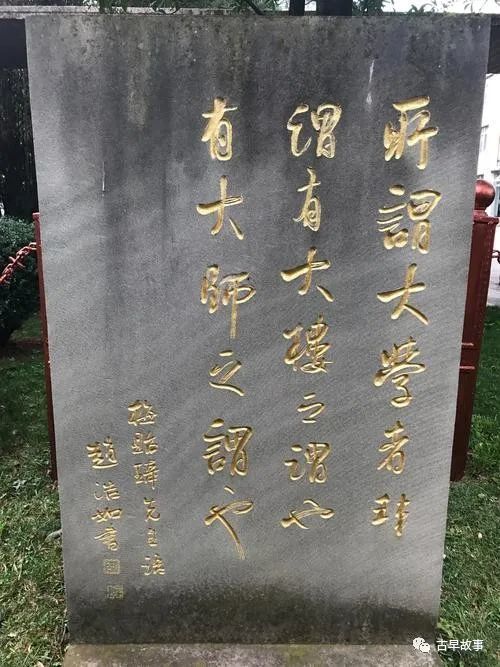 所謂大學者非
謂有大樓之謂也
有大師之謂也
梅貽琦先生語
趙浩如書
古早故事